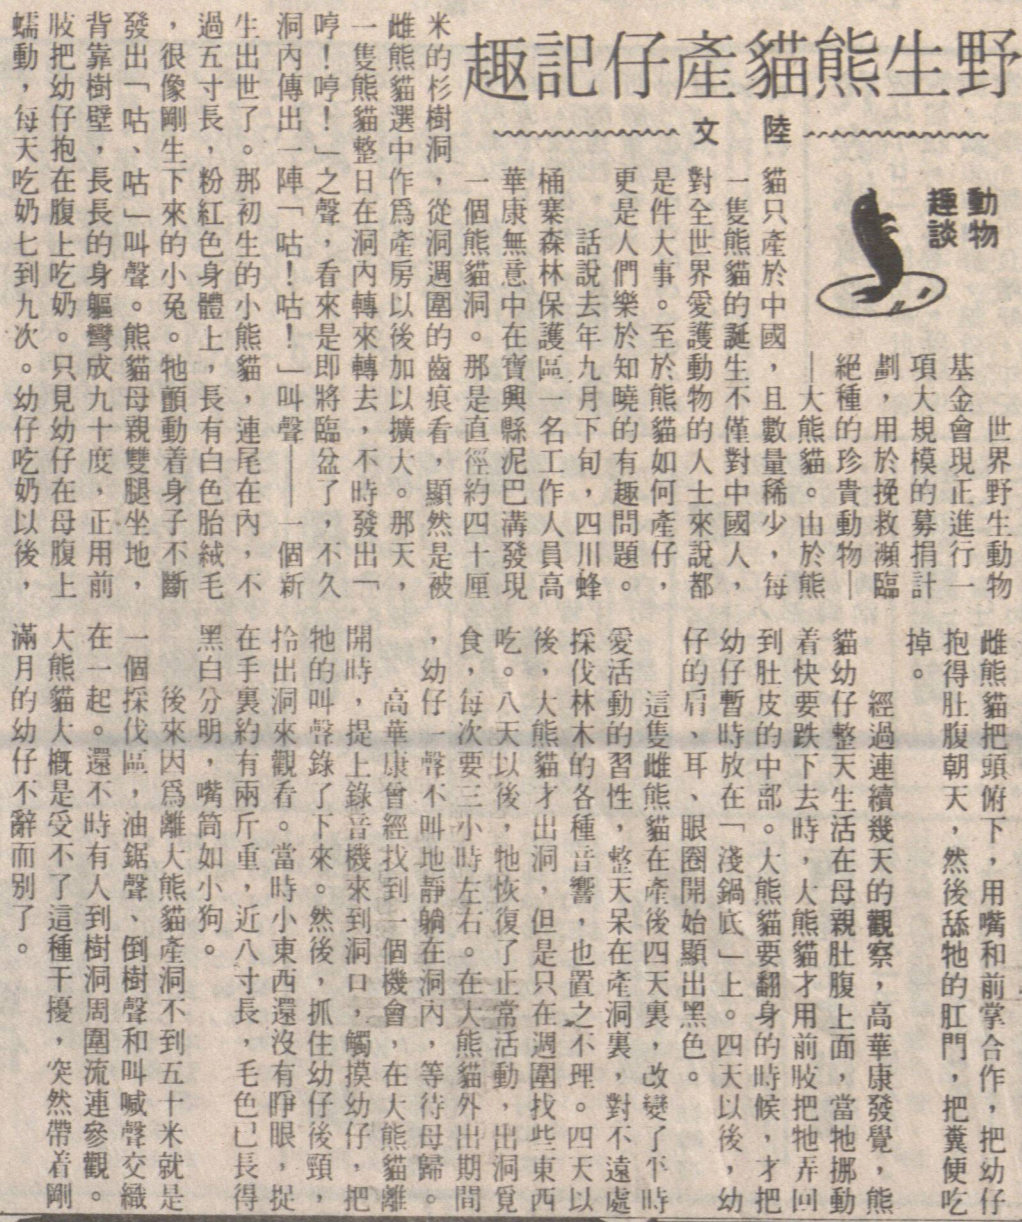 野生熊貓產仔記趣
陸文
動物
趣談
世界野生動物
基金會現正進行一
項大規模的募捐計
劃，用於挽救瀕臨
絕種的珍貴動物—
—大熊貓。由於熊
貓只產於中國，且數量稀少，每
一隻熊貓的誕生不僅對中國人，
對全世界愛護動物的人士來說都
是件大事。至於熊貓如何產仔，
更是人們樂於知曉的有趣問題。
話說去年九月下旬，四川蜂
桶寨森林保護區一名工作人員高
華康無意中在寶興縣泥巴溝發現
一個熊貓洞。那是直徑約四十厘
米的杉樹洞，從洞週圍的齒痕看，顯然是被
雌熊貓選中作爲產房以後加以擴大。那天，
一隻熊貓整日在洞內轉來轉去，不時發出「
哼！哼！」之聲，看來是即將臨盆了，不久
洞內傳出一陣「咕！咕！」叫聲——一個新
生出世了。那初生的小熊貓，連尾在內，不
過五寸長，粉紅色身體上，長有白色胎絨毛
，很像剛生下來的小兔。牠顫動着身子不斷
發出「咕、咕」叫聲。熊貓母親雙腿坐地，
背靠樹壁，長長的身軀彎成九十度，正用前
肢把幼仔抱在腹上吃奶。只見幼仔在母腹上
蠕動，每天吃奶七到九次。幼仔吃奶以後，
雌熊貓把頭俯下，用嘴和前掌合作，把幼仔
抱得肚腹朝天，然後舔牠的肛門，把糞便吃
掉。
經過連續幾天的觀察，高華康發覺，熊
貓幼仔整天生活在母親肚腹上面，當牠挪動
着快要跌下去時，大熊貓才用前肢把牠弄回
到肚皮的中部。大熊貓要翻身的時候，才把
幼仔暫時放在「淺鍋底」上。四天以後，幼
仔的肩、耳、眼圈開始顯出黑色。
這隻雌熊貓在產後四天裏，改變了平時
愛活動的習性，整天呆在產洞裏，對不遠處
採伐林木的各種音響，也置之不理。四天以
後，大熊貓才出洞，但是只在週圍找些東西
吃。八天以後，牠恢復了正常活動，出洞覓
食，每次要三小時左右。在大熊貓外出期間
，幼仔一聲不叫地靜躺在洞內，等待母歸。
高華康曾經找到一個機會，在大熊貓離
開時，提上錄音機來到洞口，觸摸幼仔，把
牠的叫聲錄了下來。然後，抓住幼仔後頸，
拎出洞來觀看。當時小東西還沒有睜眼，捉
在手裏約有兩斤重，近八寸長，毛色已長得
黑白分明，嘴筒如小狗。
後來因爲離大熊貓產洞不到五十米就是
一個採伐區，油鋸聲、倒樹聲和叫喊聲交織
在一起。還不時有人到樹洞周圍流連參觀。
大熊貓大概是受不了這種干擾，突然帶着剛
滿月的幼仔不辭而別了。